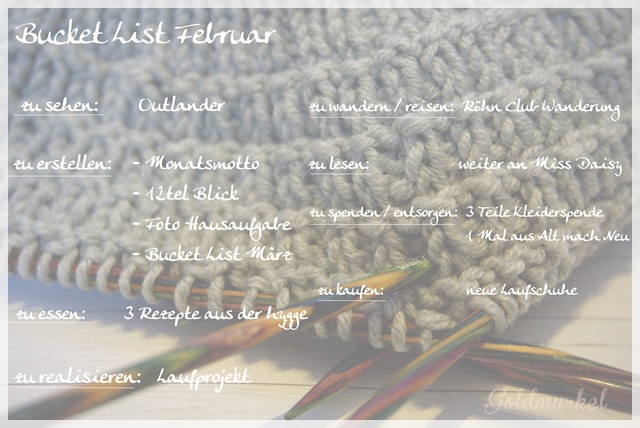 Bucket List Februar
zu sehen: Outlander
zu erstellen: - Monatsmotto
- 12tel Blick
- Foto Hausaufgabe
- Bucket List März
zu essen: 3 Rezepte aus der hygge
zu realisieren: Laufprojekt
zu wandern / reisen: Röhn Club Wanderung
zu lesen: weiter an Miss Daisy
zu spenden / entsorgen: 3 Teile Kleiderspende
1 Mal aus Alt mach Neu
zu kaufen: neue Laufschuhe
Goldmurkel